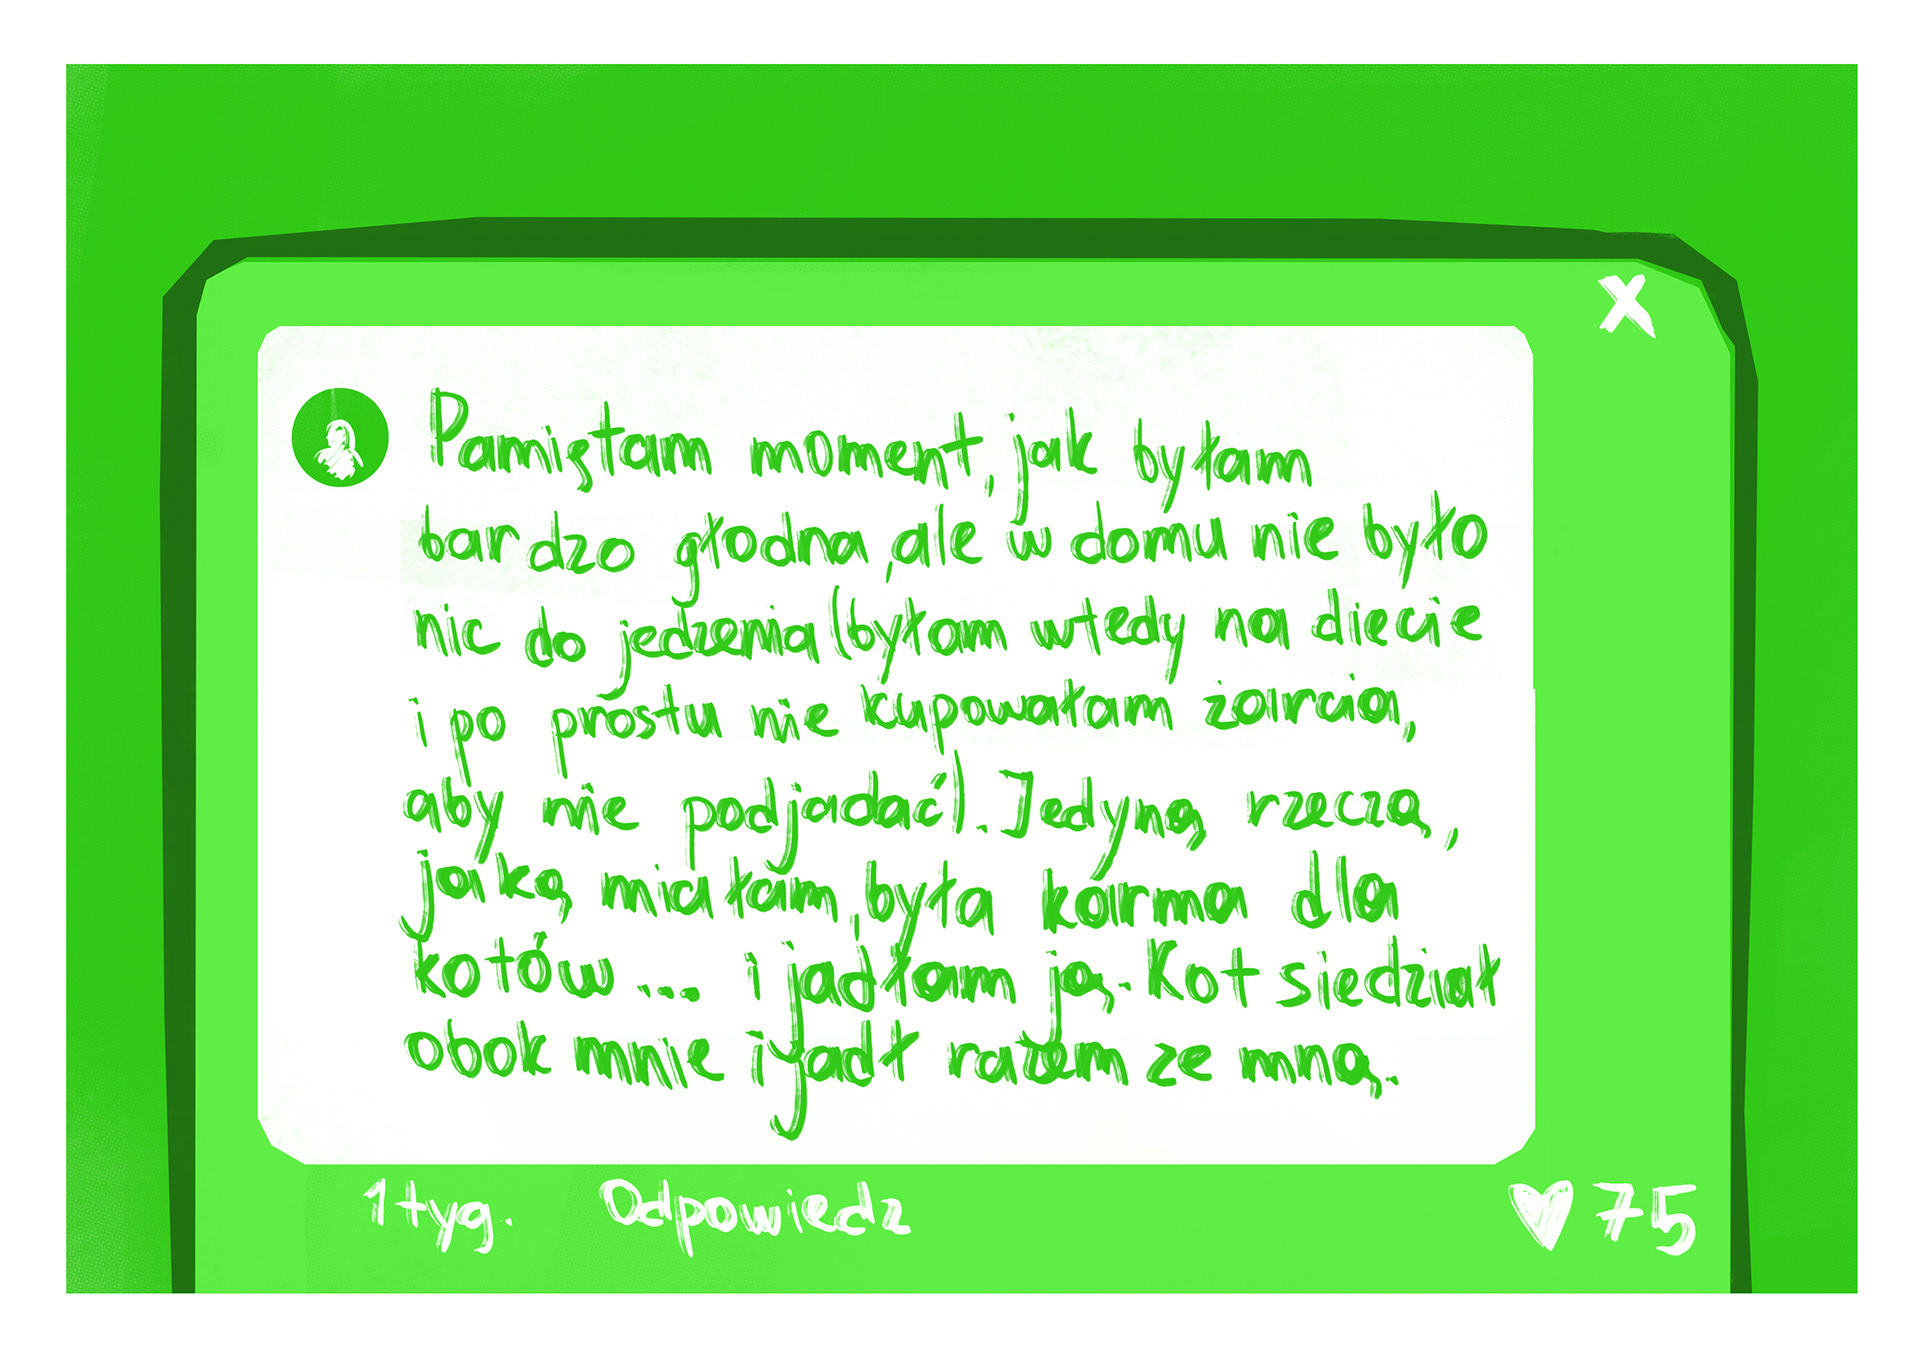 X
Pamiętam moment, jak byłam
bardzo głodna, ale w domu nie było
nic do jedzenia (byłam wtedy na diecie
i po prostu nie kupowałam żarcia,
aby nie podjadać). Jedyną rzeczą,
jaką miałam, była karma dla
kotów... i jadłam ją. Kot siedział
obok mnie i jadł razem ze mną.
1 tyg. Odpowiedz 75